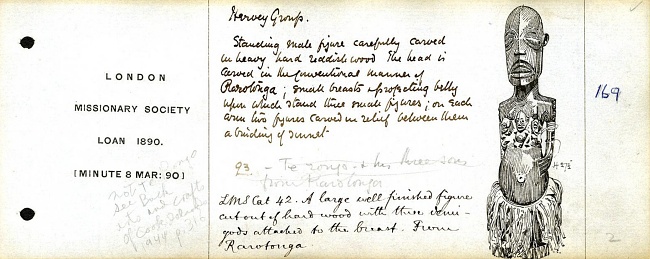 LONDON
MISSIONARY SOCIETY
LOAN 1890.
[MINUTE 8 MAR: 90]
not Te Rongo
see Buck
arts and Crafts
of Cook Islands
1944 p. 316
Hervey Group.
Standing male figure carefully carved
in heavy hard reddish wood The head is
carved in the conventional manner of
Rarotonga; small breasts & projecting belly
upon which stand three small figures; on each
arm two figures carved in relief between them
a binding of sinnet
93 - Te rongo & his three sons
from Rarotonga
LMS Cat 42. A large well finished figure
cut out of hard wood with three demi-
gods attached to the breast. From
Rarotonga.
169
2